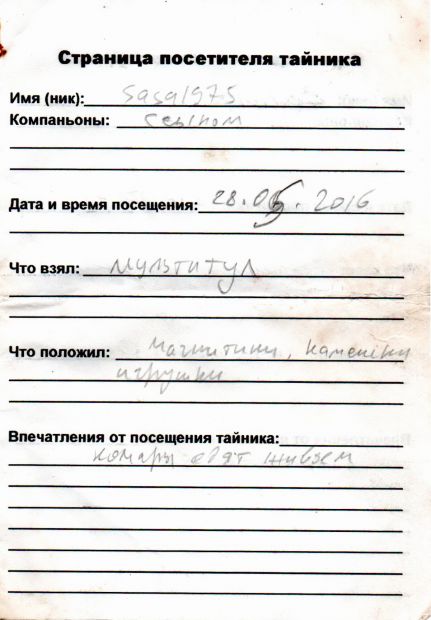 Страница посетителя тайника
Имя (ник): sasa1975
Компаньоны: с сыном
Дата и время посещения: 28.05. 2016
Что взял: мультитул
Что положил: магнитики, камешки
игрушки
Впечатления от посещения тайника:
комары едят живьем